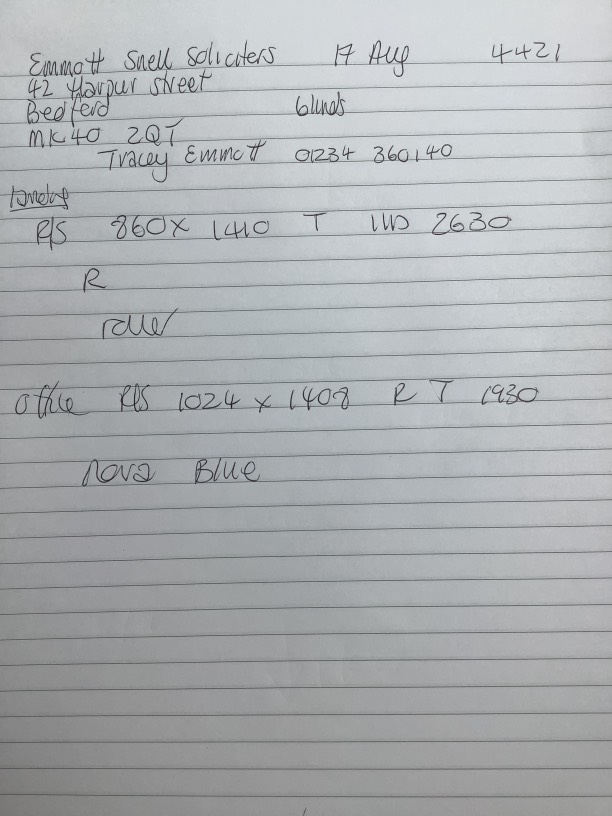 Emmott Snell Soliciters 17 Aug 4421
42 Harpur Street
Bedford blinds
MK40 2QT
Tracey Emmott 01234 360140
Landing
R/S 860 x 1410 T 2630
R
roller
office R/S 1024 x 1408 R T 1930
Nova Blue